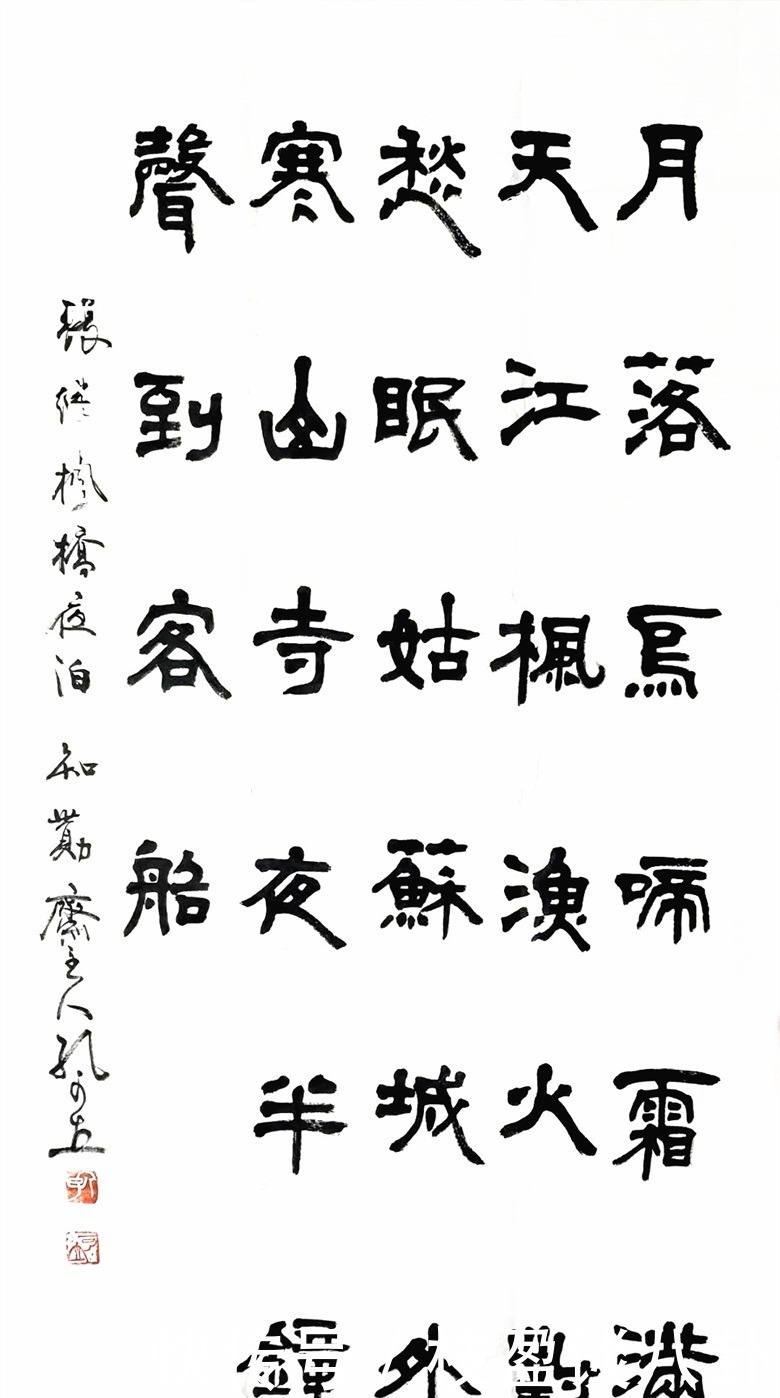 月落烏啼霜滿
天江楓漁火
愁眠姑蘇城外
寒山寺夜半鐘
聲到客船
張繼楓橋夜泊 知勤齋主人孔可立